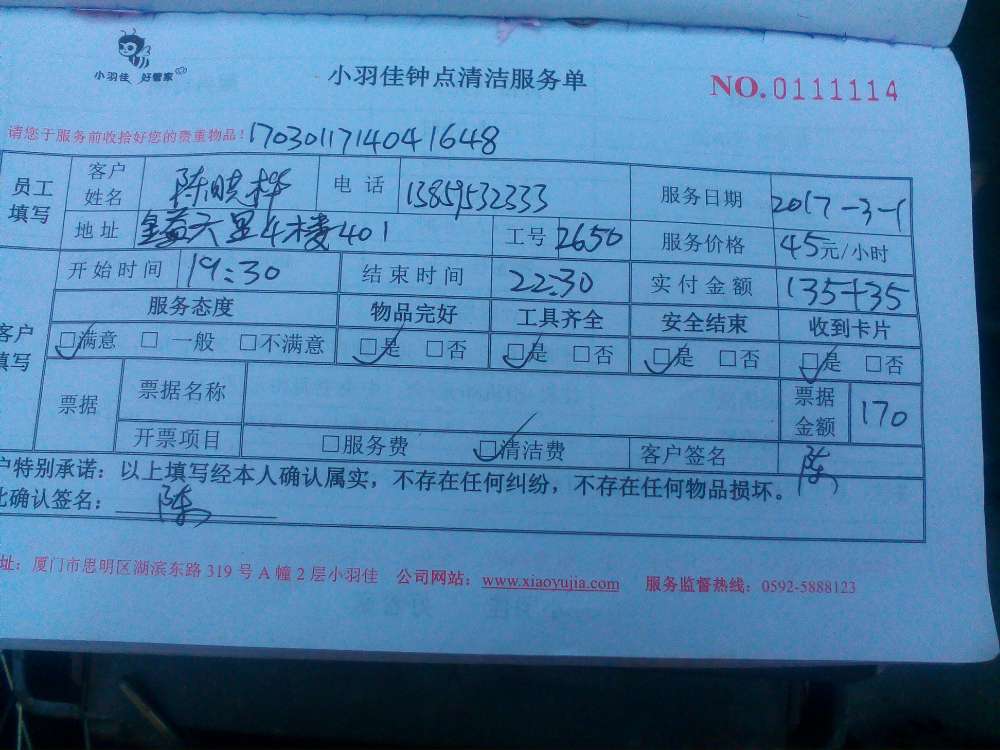 小羽佳 好管家
小羽佳钟点清洁服务单
NO.0111114
请您于服务前收拾好您的贵重物品！1703011714041648
员工填写 客户姓名 陈 电话 13859532333 服务日期 2017-3-1
地址 4楼401 工号 2650 服务价格 45元/小时
开始时间 19:30 结束时间 22:30 实付金额 135+35
客户填写 服务态度 物品完好 工具齐全 安全结束 收到卡片
□满意 □一般 □不满意 □是 □否 □是 □否 □是 □否 □是 □否
票据 票据名称 票据金额 170
开票项目 □服务费 □清洁费 客户签名 陈
户特别承诺：以上填写经本人确认属实，不存在任何纠纷，不存在任何物品损坏。
此确认签名： 陈
址：厦门市思明区湖滨东路 319 号 A 幢 2 层小羽佳 公司网站：www.xiaoyujia.com 服务监督热线：0592-5888123